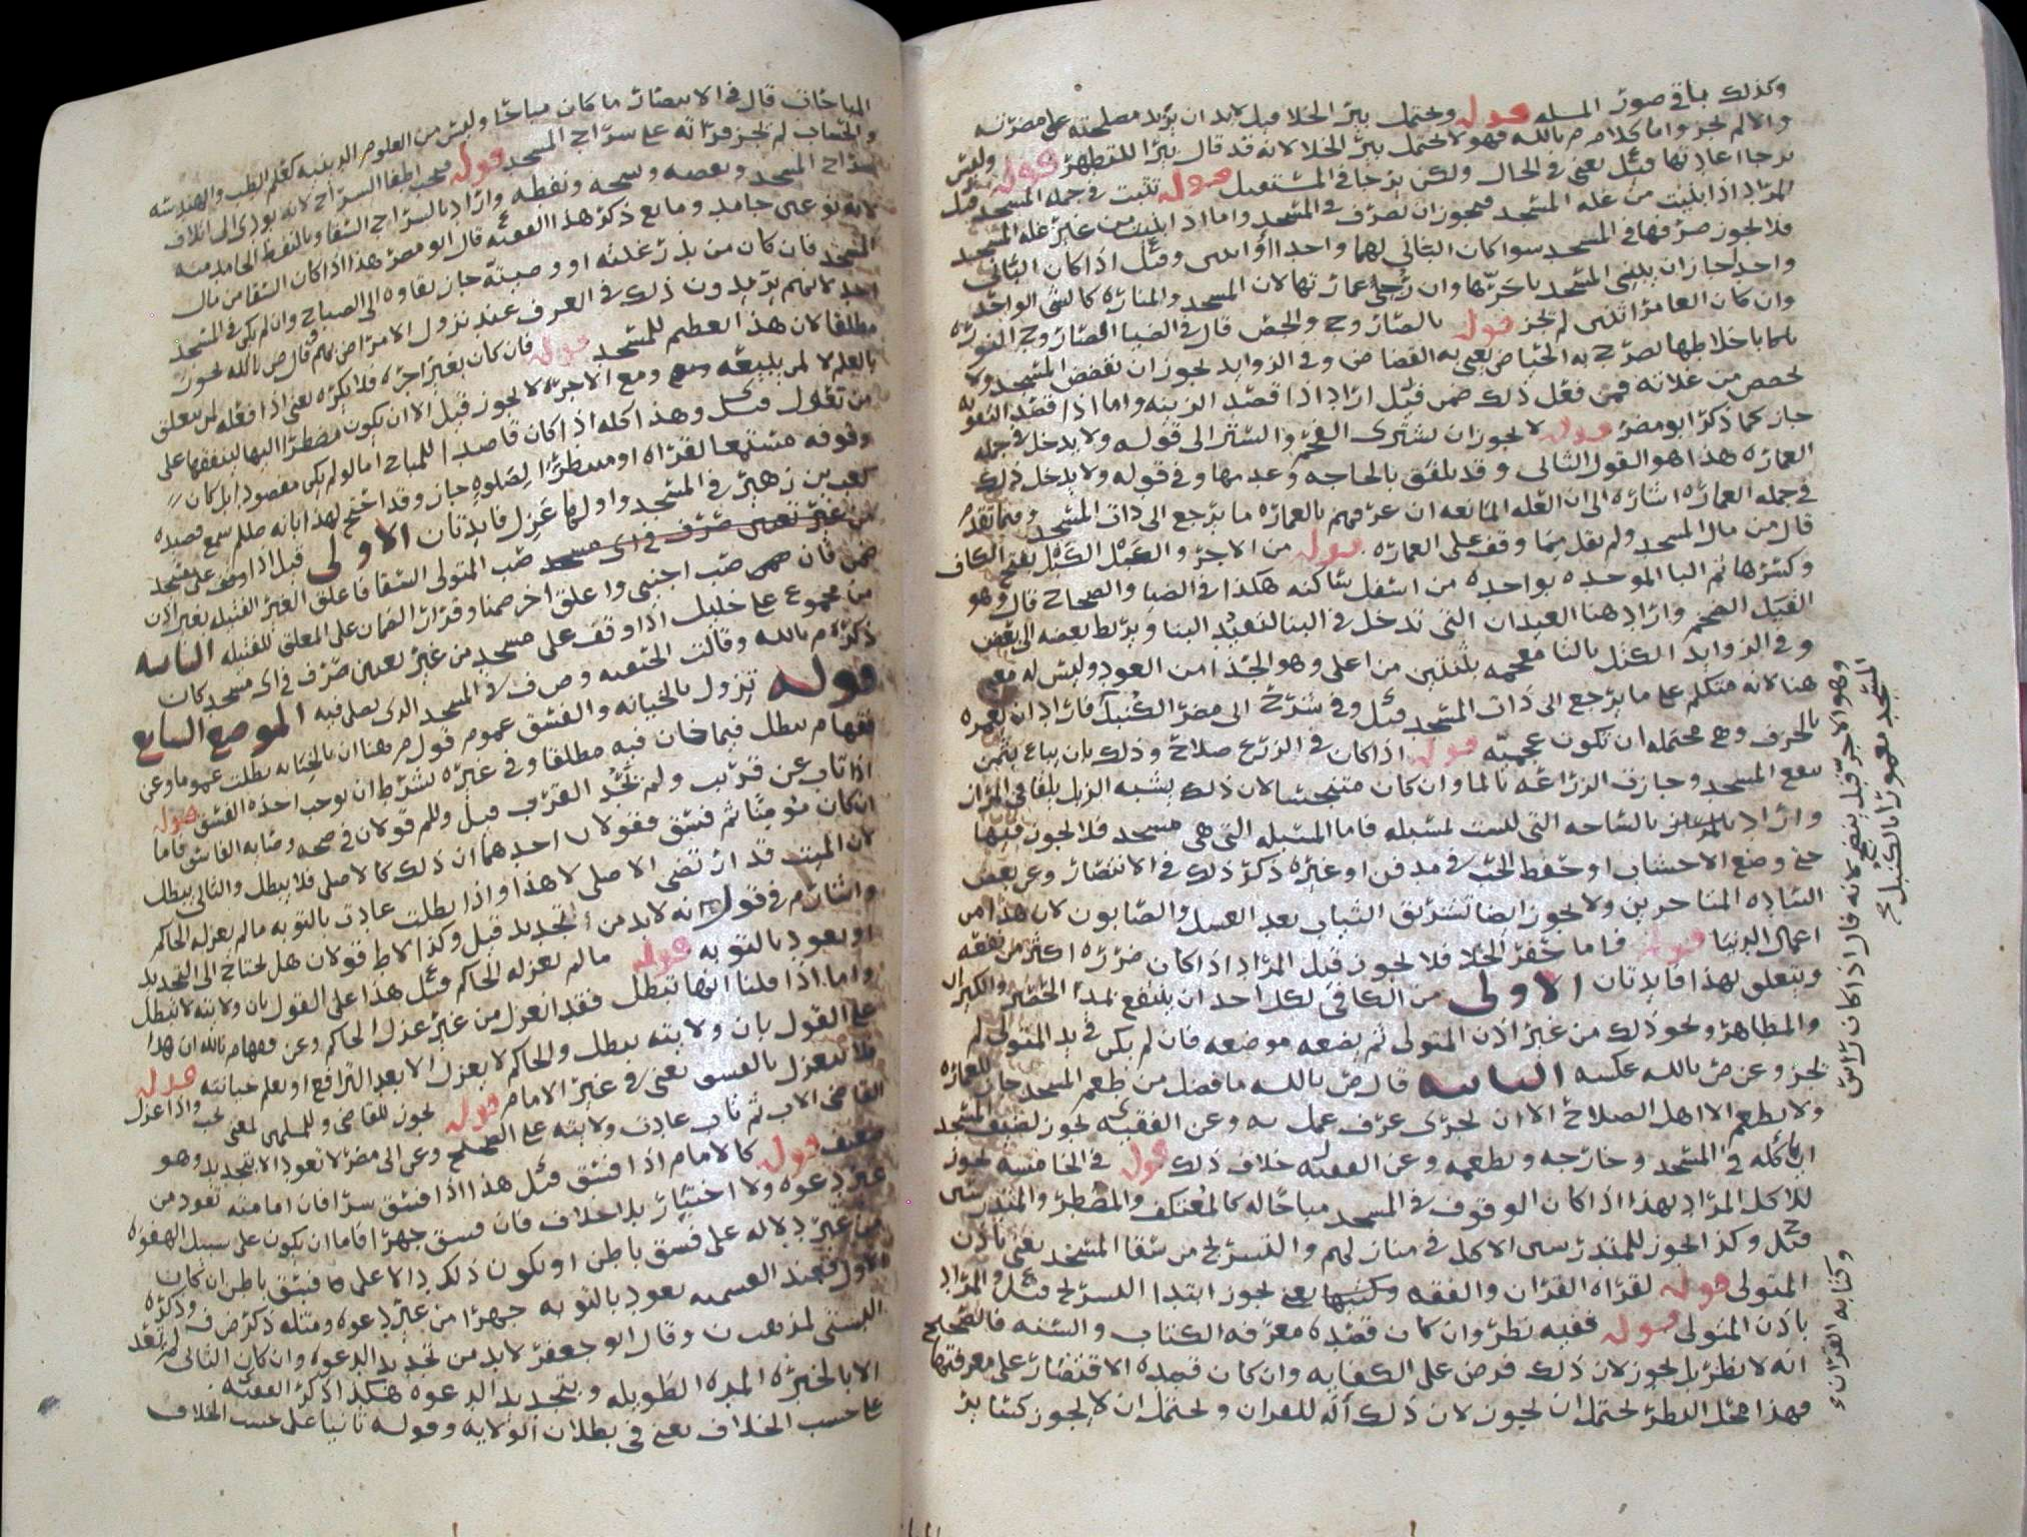 وكذلك باقي صور المسله قوله ويحتمل بير الخلا قيل لابد ان يريد مصلحته على مضرته
والا لم يجز واما كلام م بالله فهو لا يحتمل بير الخلا لانه قد قال بيرا للتطهر قوله وليس
يرجا اعادتها قيل يعني في الحال ولكن يرجا في المستقبل قوله تثبت في جمله المسجد قيل
المراد اذا بنيت من غله المسجد فيجوز ان تصرف في المسجد واما اذا بنيت من غير غله المسجد
فلا يجوز صرفها في المسجد سوا كان الباني لهما واحدا او اثنين وقيل اذا كان الباني
واحدا جاز ان يبني المسجد باخرتها وان رجي عمارتها لان المسجد والمناره كالشي الواحد
وان كان العامر اثنين لم يجز قوله بالصاروج والجص قال في الضيا الصاروج النوره
باخلاطها تصرج به الحياض يعني به القضاض وفي الزوايد يجوز ان تقضض المسجد ولا
يجصص من غلاته فمن فعل ذلك ضمن قيل اراد اذا قصد الزينه واما اذا قصد التقويه
جاز كما ذكر ابو مضر قوله لا يجوز ان يشترى الفحم والستر الى قوله ولا يدخل في جمله
العماره هذا هو القول الثاني وقد يلفق بالحاجه وعدمها وفي قوله ولا يدخل ذلك
في جمله العماره اشاره الى ان العله المانعه ان عرفهم بالعماره ما يرجع الى ذات المسجد وفيما تقدم
قال من مال المسجد ولم يقل مما وقف على العماره قوله من الاجر والكبل الكبل بفتح الكاف
وكسرها ثم البا الموحده بواحده من اسفل ساكنه هكذا في الضيا والصحاح قال وهو
القيد الضخم واراد هنا العيدان التي تدخل في البنا لتقييد البنا ويربط بعضه الى بعض
وفي الزوايد الكثل بالثا معجمه بثلثين من اعلى وهو الجذا من العود وليس له معنى
هنا لانه متكلم على ما يرجع الى ذات المسجد قيل وفي شرح ابي مضر الكنبل فاراد ان يعمره
بالخزف وهي محتمله ان تكون عجميه قوله اذا كان في الزرع صلاح وذلك بان يباع بثمن
ينفع المسجد وجازت الزراعه بالما وان كان متنجسا لان ذلك يشبه الزبل يلقا في المزارع
واراد بالساحه التي ليست لمسبله فاما المسبله التي هي مسجد فلا يجوز فيها
حتى وضع الاخشاب او حفظ الحب في مدفن او غيره ذكر ذلك في الانتصار وعن بعض
الساده المتاخرين ولا يجوز ايضا تشريق الثياب بعد الغسل والصابون لان هذا من
اعمال الدنيا قوله فاما حفر الخلا فلا يجوز قيل المراد اذا كان ضرره اكثر من نفعه
ويتعلق بهذا فايدتان الاولى من الكافي لكل احد ان ينتفع بمدا الحصير والكيزان
والمطاهر ونحو ذلك من غير اذن المتولي ثم يضعه موضعه فان لم يكن في يد المتولي لم
يجز وعن ص بالله عكسه الثانيه قال ص بالله ما فضل من طعم المسجد جاز للعماره
ولا يطعم الا اهل الصلاح الا ان يجري عرف عمل به وعن الفقيه يجوز لضيف المسجد
ان ياكله في المسجد وخارجه ويطعمه وعن الفقيه خلاف ذلك قوله في الخامسه يجوز
للاكل المراد بهذا اذا كان الوقوف في المسجد مباحا له كالمعتكف والمضطر والمتدرسين
قيل وكذا يجوز للمتدرسين الاكل في منازلهم والتسريج من سقا المسجد يعني باذن
المتولي قوله لقراه القران والفقه وكتبها يعني يجوز ابتدا التسريج قيل والمراد
باذن المتولي قوله ففيه نظر وان كان قصده معرفه الكتاب والسنه فالصحيح
انه لا نظر بل يجوز لان ذلك فرض على الكفايه وان كان قصده الاقتصار على معرفتها
فهذا محل النظر يحتمل ان يجوز لان ذلك اله للقران ويحتمل ان لا يجوز كساير
وهو الاجر قبل ينضج لانه قال اذا كان راس
المسجد معمورا بالكنبل
وكتابه القران
المباحات قال في الانتصار ما كان مباحا وليس من العلوم الدينيه كعلم الطب والهندسه
والحساب لم يجز قراته على سراج المسجد قوله فيجب اطفا السراج لانه يودي الى اتلاف
سراج المسجد ونقصه وشمعه ونفطه واراد بالسراج السقا وبالنفط الجامد منه
لانه نوعين جامد ومايع ذكر هذا الفقيه قال ابو مضر هذا اذا كان السقا من مال
المسجد فان كان من بذر غلته او وصيته جاز بقاوه الى الصباح وان لم يكن في المسجد
احد لانهم يريدون ذلك في العرف عند نزول الامراض بهم وقال ص بالله يجوز
مطلقا لان هذا تعظيم للمسجد قوله فان كان بغير اجره فلا يكره يعني اذا فعله لمن يتعلق
بالعلم لا لمن يبيعه ومع الاجره لا يجوز قيل الا ان يكون مضطرا اليها لينفقها على
من تعول قيل وهذا كله اذا كان قاصدا للمباح اما لو لم يكن مقصودا بل كان
وقوفه مستمعا لقراه او منتظرا لصلوه جاز وقد احتج لهذا بانه صلعم سمع قصيده
كعب بن زهير في المسجد فايدتان الاولى قيل اذا وقف على مسجد
من غير تعيين صرف في اي مسجد صب المتولي السقا فاعلق الغير الفتيله بغير اذن
ضمن فان صب اجنبي واعلق اخر ضمنا وقرار الضمان على المعلق للفتيله الثانيه
من مجموع علي خليل اذا وقف على مسجد من غير تعيين صرف في اي مسجد كان
ذكره م بالله وقالت الحنفيه وص ف في المسجد الذي يصلي فيه الموضع السابع
قوله تزول بالخيانه والفسق عموم قول م هنا ان بالخيانه بطلت عموما وعن
فقهام يبطل فيما خان فيه مطلقا وفي غيره بشرط ان يوجب اخذه الفسق قوله
اذا تاب عن قريب ولم يحد القرب قيل وللم قولان في صحه وصايه الفاسق فاما
ان كان مومنا ثم فسق فقولان احدهما ان ذلك كالاصلي فلا يبطل والثاني يبطل
لان الميت قد ارتضى الاصلي لا هذا واذا بطلت عادت بالتوبه ما لم يعزله الحاكم
واشار م في قول انه لابد من التجديد قيل وكذا لاط قولان هل يحتاج الى التجديد
او يعود بالتوبه قوله ما لم يعزله الحاكم قيل هذا على القول بان ولايته لا تبطل
واما اذا قلنا انها تبطل فقد انعزل من غير عزل الحاكم وعن فقهام بالله ان هذا
على القول بان ولايته تبطل والحاكم لا يعزل الا بعد الترافع او يعلم خيانته قوله
فلا ينعزل بالفسق يعني في غير الامام قوله يجوز للقاضي وللمسلمين لمعنى يجب واذا عزل
القاضي الاب ثم تاب عادت ولايته على الصحيح وعن ابي مضر لا تعود الا بتجديد وهو
ضعيف قوله كالامام اذا فسق قيل هذا اذا فسق سرا فان امامته تعود من
غير دعوه ولا اختيار بلا خلاف فان فسق جهرا فاما ان يكون على سبيل الهفوه
من غير دلاله على فسق باطن او يكون ذلك دالا على فسق باطن ان كان
الاول فعند القسميه يعود بالتوبه جهرا من غير دعوه ومثله ذكر ض ف وذكره
البستي لمذهب ن وقال ابو جعفر لابد من تجديد الدعوه وان كان الثاني لم تعد
الا بالخبره المده الطويله وبتجديد الدعوه هكذا ذكر الفقيه
على حسب الخلاف يعني في بطلان الولايه وقوله ثانيا على حسب الخلاف